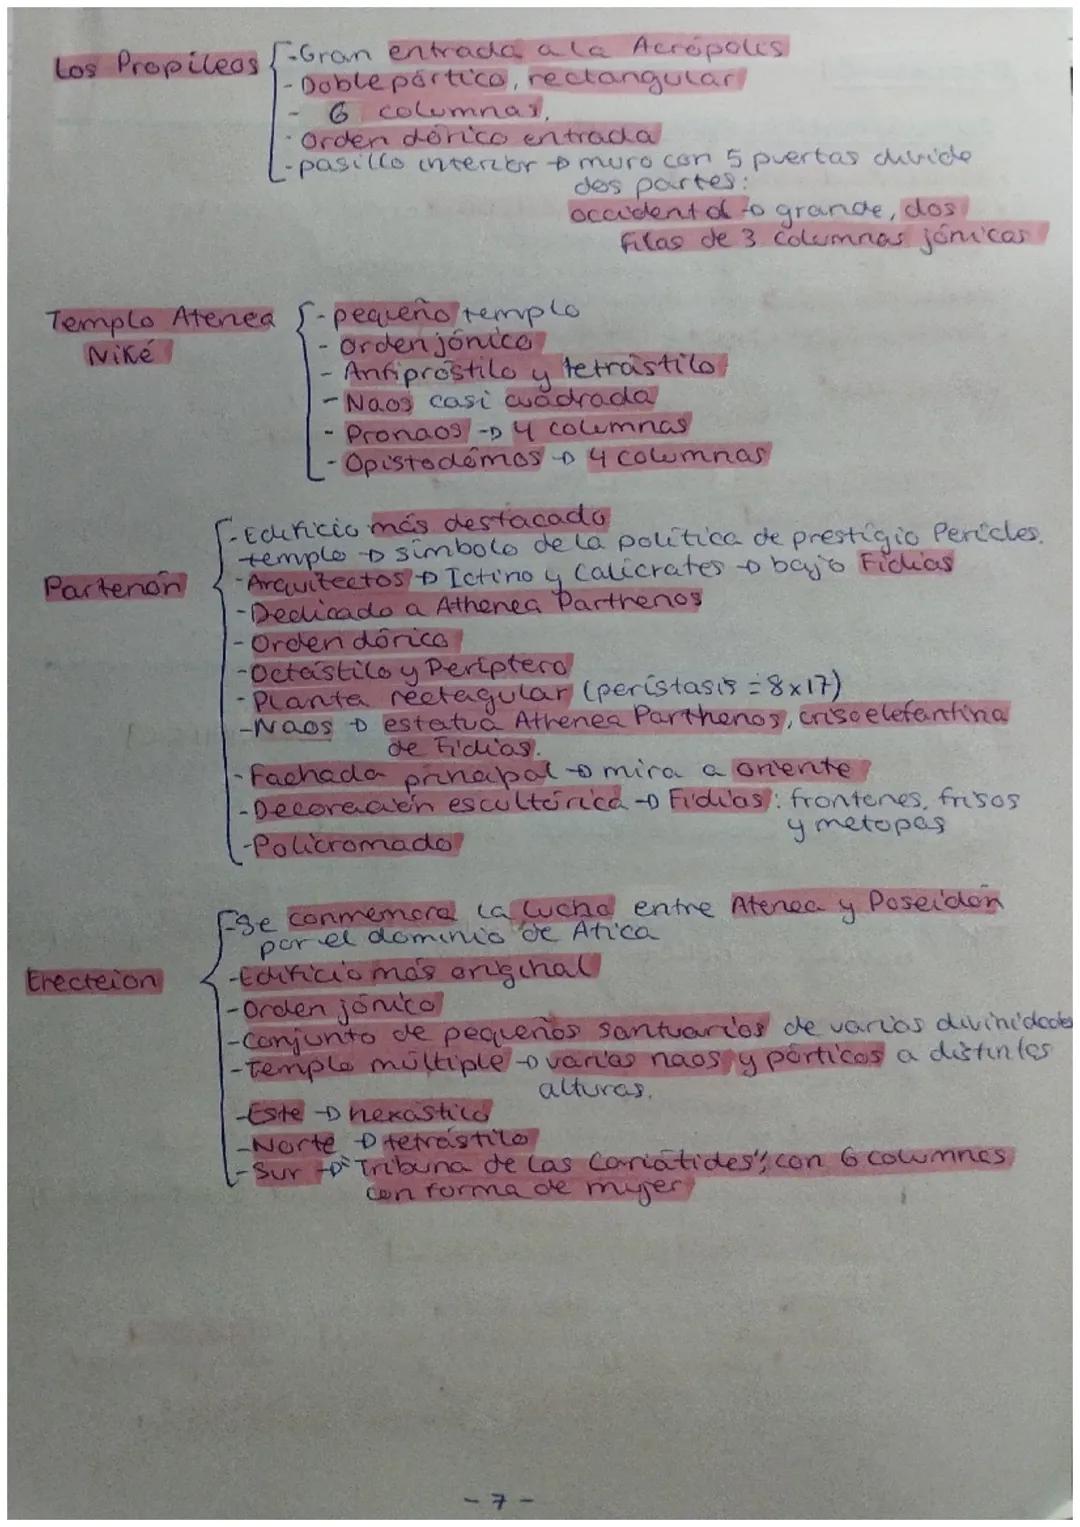 Los Propileos
-Gran entrada a la Acrópolis
-Doble pórtico, rectangular
- 6 columnas,
-Orden dórico entrada
-pasillo interior → muro con 5 puertas divide
dos partes:
occidental → grande, dos
filas de 3 columnas jónicas
Templo Atenea
Niké
-pequeño templo
-Orden jónico
-Anfipróstilo y tetrástilo
-Naos casi cuadrada
-Pronaos → 4 columnas
-Opistodómos → 4 columnas
Partenón
-Edificio más destacado
templo → símbolo de la política de prestigio Pericles.
-Arquitectos → Ictino y Calícrates → bajo Fidias
-Dedicado a Athenea Parthenos
-Orden dórico
-Octástilo y Períptero
-Planta rectagular (perístasis = 8x17)
-Naos → estatua Athenea Parthenos, crisoelefantina
de Fidias.
-Fachada principal → mira a oriente
-Decoración escultórica → Fidias: frontones, frisos
y metopas
-Policromado
Erecteion
-Se conmemora la lucha entre Atenea y Poseidón
por el dominio de Atica
-Edificio más original
-Orden jónico
-Conjunto de pequeños santuarios de varias divinidades
-Templo múltiple → varias naos y pórticos a distintas
alturas.
-Este → hexástilo
-Norte → tetrástilo
-Sur → "Tribuna de las Cariátides", con 6 columnas
con forma de mujer
- 7 -